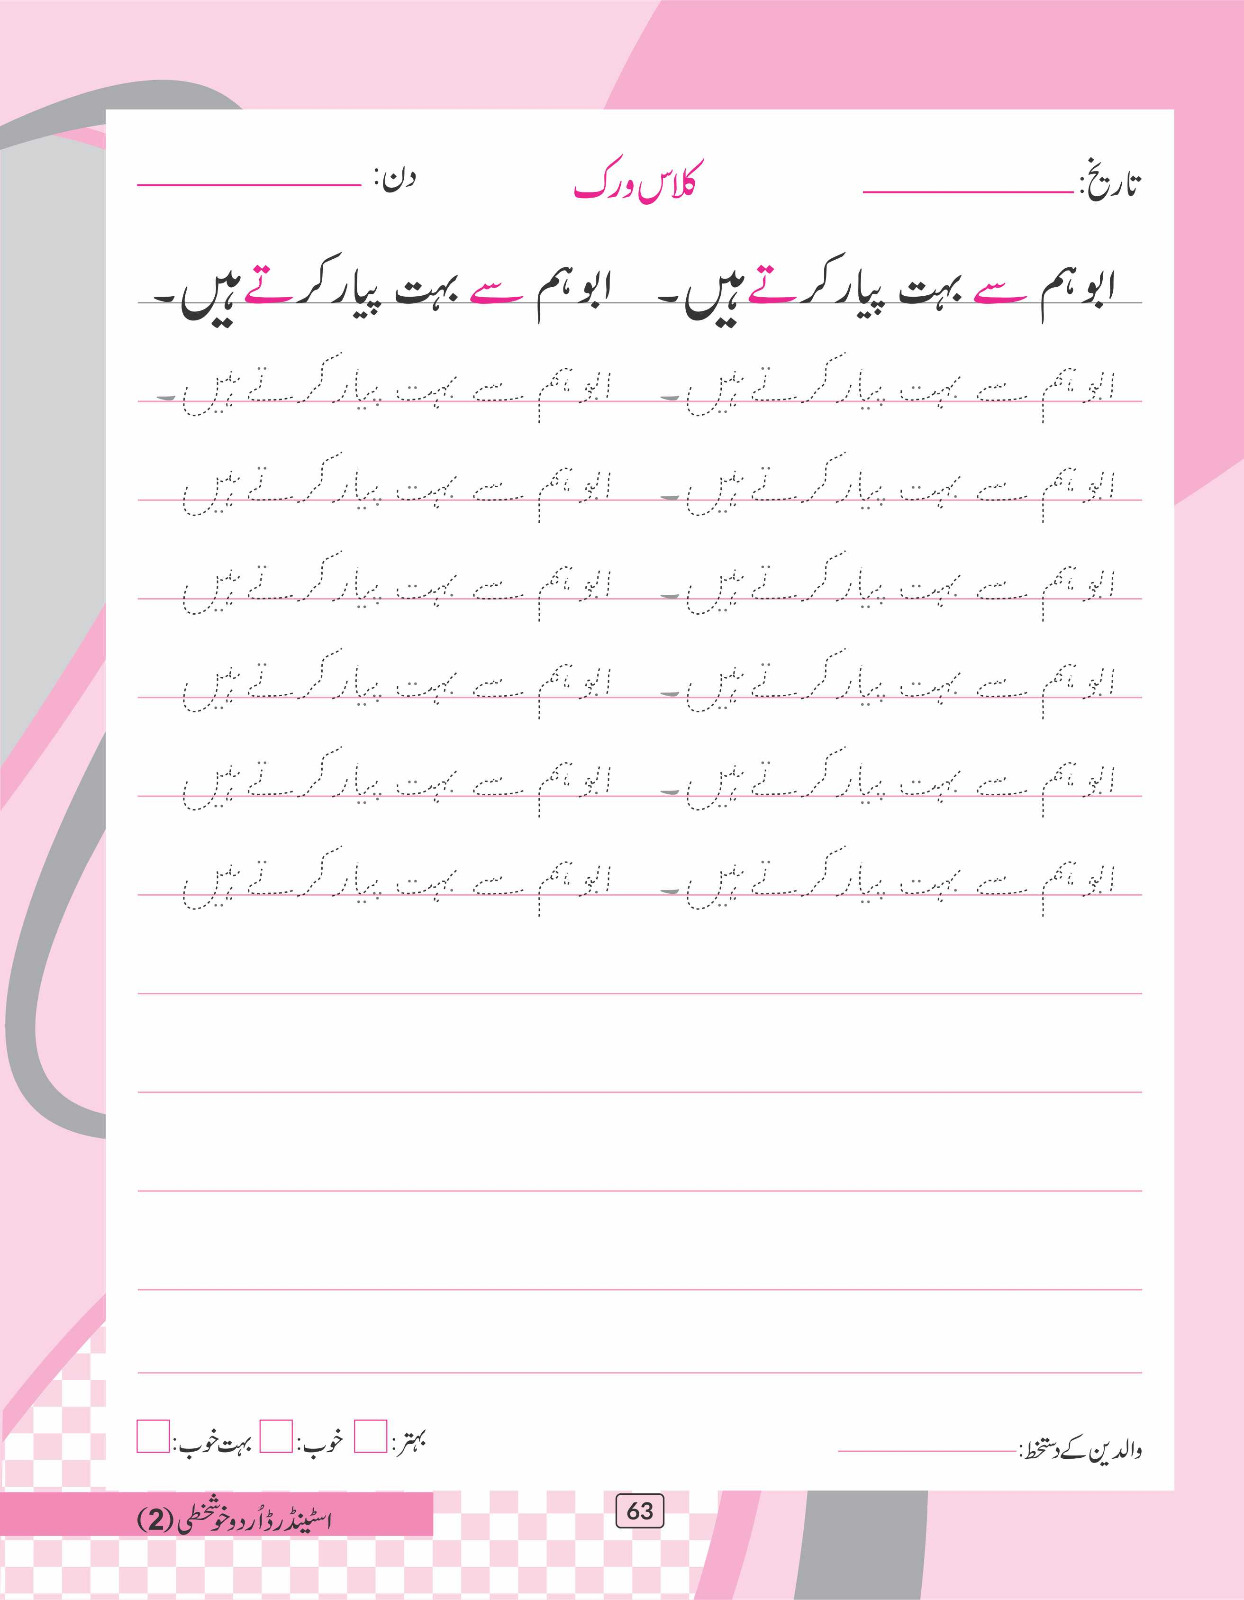 تاریخ: کلاس ورک دن:
ابو ہم سے بہت پیار کرتے ہیں۔ ابو ہم سے بہت پیار کرتے ہیں۔
ابو ہم سے بہت پیار کرتے ہیں۔ ابو ہم سے بہت پیار کرتے ہیں۔
ابو ہم سے بہت پیار کرتے ہیں۔ ابو ہم سے بہت پیار کرتے ہیں
ابو ہم سے بہت پیار کرتے ہیں۔ ابو ہم سے بہت پیار کرتے ہیں
ابو ہم سے بہت پیار کرتے ہیں۔ ابو ہم سے بہت پیار کرتے ہیں
ابو ہم سے بہت پیار کرتے ہیں۔ ابو ہم سے بہت پیار کرتے ہیں
ابو ہم سے بہت پیار کرتے ہیں۔ ابو ہم سے بہت پیار کرتے ہیں
والدین کے دستخط: بہتر: خوب: بہت خوب:
63
اسٹینڈرڈ اُردو خوشخطی (2)